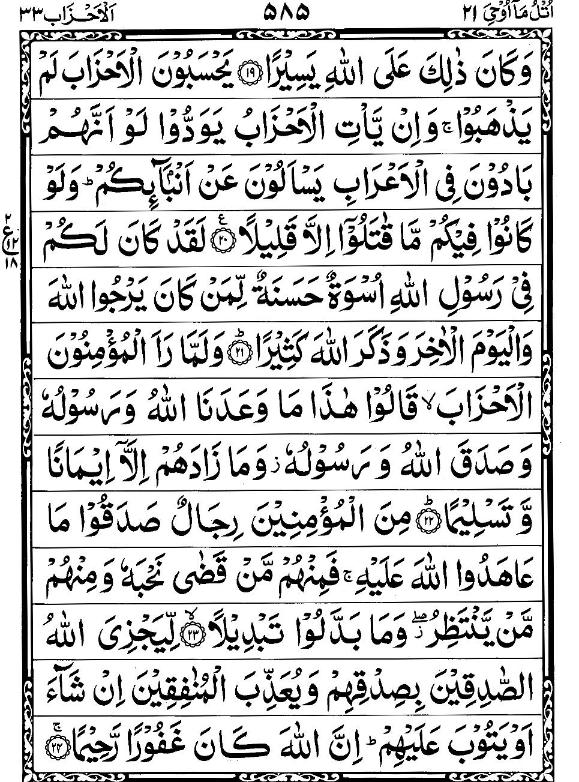 اُتْلُ مَآ اُوْحِیَ ۲۱ ۵۸۵ اَلْاَحْزَاب ۳۳
وَكَانَ ذٰلِكَ عَلَى اللّٰهِ يَسِيْرًا ﴿۱۹﴾ يَحْسَبُوْنَ الْاَحْزَابَ لَمْ
يَذْهَبُوْا ۚ وَاِنْ يَّاْتِ الْاَحْزَابُ يَوَدُّوْا لَوْ اَنَّهُمْ
بَادُوْنَ فِى الْاَعْرَابِ يَسْاَلُوْنَ عَنْ اَنْۢبَآىِٕكُمْ ؕ وَلَوْ
كَانُوْا فِيْكُمْ مَّا قٰتَلُوْۤا اِلَّا قَلِيْلًا ﴿۲۰﴾ ع لَقَدْ كَانَ لَكُمْ
۲
ع
۱۲
۱۸
فِىْ رَسُوْلِ اللّٰهِ اُسْوَةٌ حَسَنَةٌ لِّمَنْ كَانَ يَرْجُوا اللّٰهَ
وَالْيَوْمَ الْاٰخِرَ وَذَكَرَ اللّٰهَ كَثِيْرًا ؕ﴿۲۱﴾ وَلَمَّا رَاَ الْمُؤْمِنُوْنَ
الْاَحْزَابَ ۙ قَالُوْا هٰذَا مَا وَعَدَنَا اللّٰهُ وَرَسُوْلُهٗ
وَصَدَقَ اللّٰهُ وَرَسُوْلُهٗ ؗ وَمَا زَادَهُمْ اِلَّاۤ اِيْمَانًا
وَّتَسْلِيْمًا ؕ﴿۲۲﴾ مِنَ الْمُؤْمِنِيْنَ رِجَالٌ صَدَقُوْا مَا
عَاهَدُوا اللّٰهَ عَلَيْهِ ۚ فَمِنْهُمْ مَّنْ قَضٰى نَحْبَهٗ وَمِنْهُمْ
مَّنْ يَّنْتَظِرُ ۖؗ وَمَا بَدَّلُوْا تَبْدِيْلًا ۙ﴿۲۳﴾ لِّيَجْزِىَ اللّٰهُ
الصّٰدِقِيْنَ بِصِدْقِهِمْ وَيُعَذِّبَ الْمُنٰفِقِيْنَ اِنْ شَآءَ
اَوْ يَتُوْبَ عَلَيْهِمْ ؕ اِنَّ اللّٰهَ كَانَ غَفُوْرًا رَّحِيْمًا ۚ﴿۲۴﴾